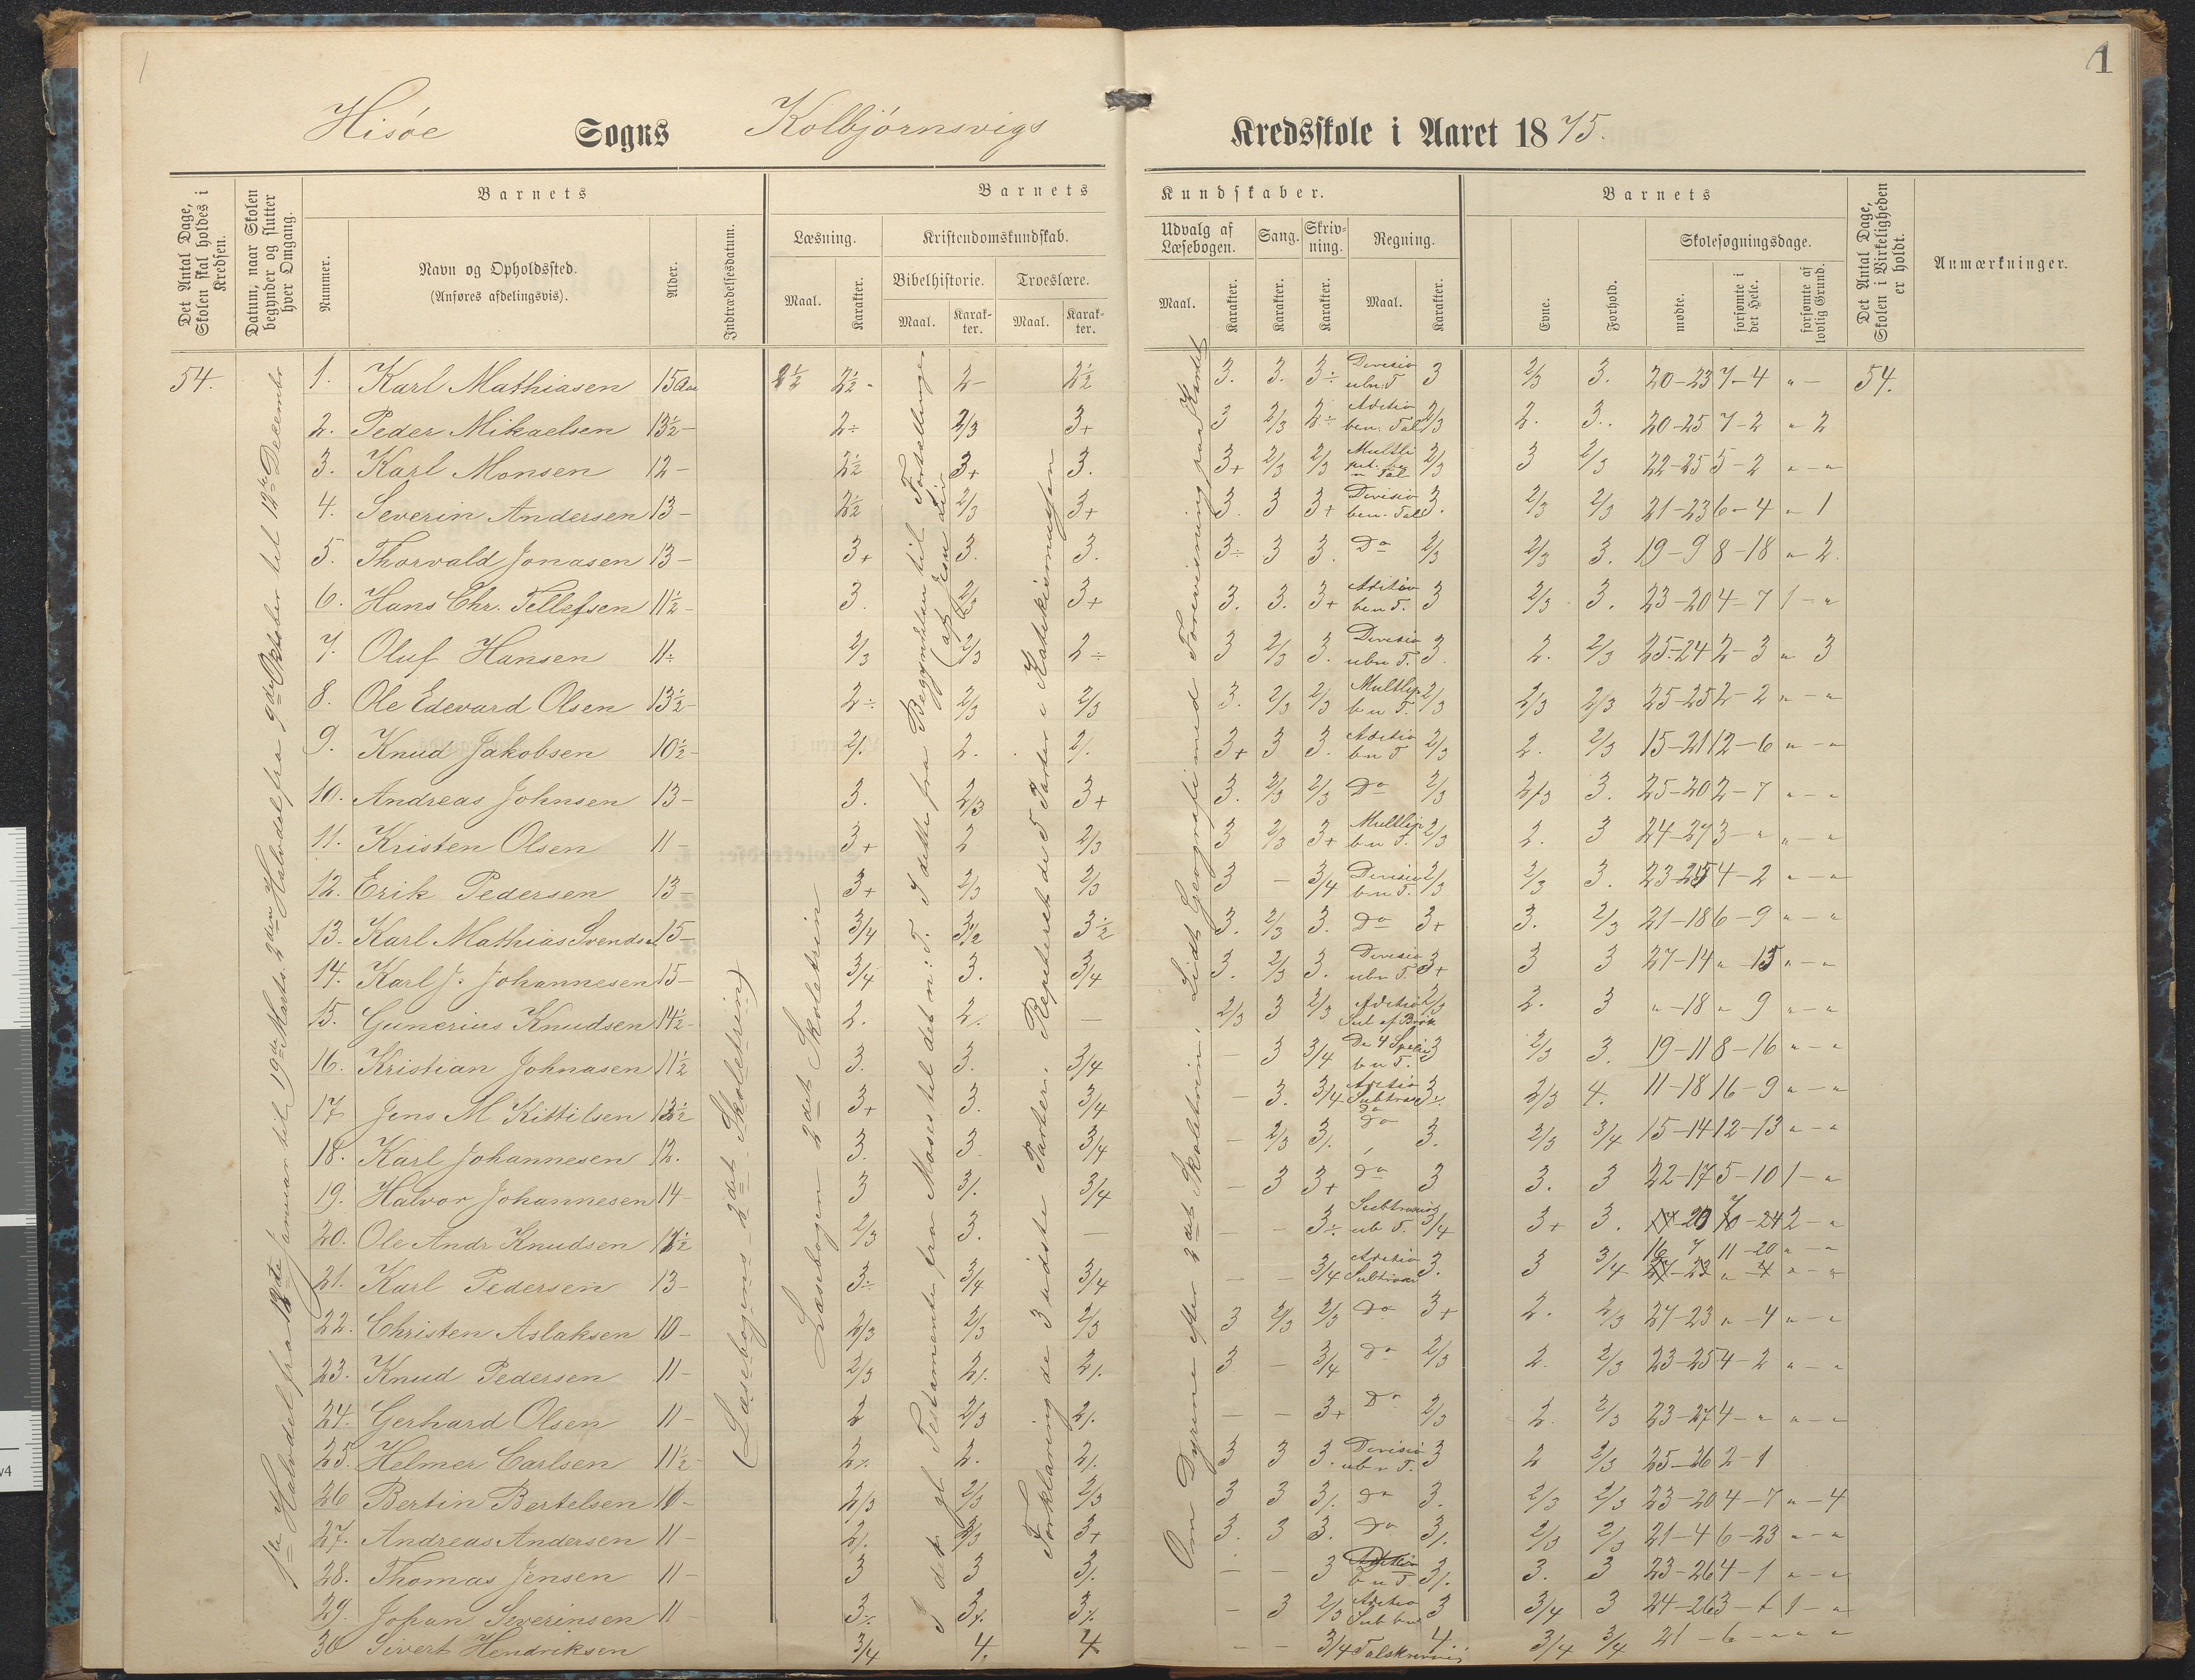 1
1
Hisöe Sogns Kolbjörnsvigs Kredsskole i Aaret 1875.
Det Antal Dage, Skolen skal holdes i Kredsen.
Datum, naar Skolen begynder og slutter hver Omgang.
Barnets
Nummer.
Navn og Opholdssted.
(Anføres afdelingsvis).
Alder.
Indtrædelsesdatum.
Barnets Kundskaber.
Læsning.
Maal. Karakter.
Kristendomskundskab.
Bibelhistorie. Troeslære.
Maal. Karak-ter. Maal. Karak-ter.
Udvalg af Læsebogen.
Maal. Karakter.
Sang. Karakter.
Skriv-ning. Karakter.
Regning.
Maal. Karakter.
Barnets
Evne. Forhold.
Skolesøgningsdage.
mødte. forsømte i det Hele. forsømte af lovlig Grund.
Det Antal Dage, Skolen i Virkeligheden er holdt.
Anmærkninger.
1ste Halvdel fra 18de Januar til 19de Marts. 2den Halvdel fra 9de Oktober til 18de December
(Læsebogens 2det Skoletrin)
Læsebogen 2det Skoletrin
I det gl Testamente fra Moses til det n: T. I dette fra Begyndelsen til Fortællinger
(af Jesu Liv
Forklaring de 3 sidste Parter. Repeteret de 5 Parter i Katekismusen
Om Dyrene efter 2det Skoletrin. Lidt Geografi med Forevisning paa Kartet
54. 1. Karl Mathiasen 15 Aar 2½ 2½ 2- 2½ 3. 3. 3÷ Divisio ubn: T 3 2/3 3. 20-23 7-4 „ - 54.
2. Peder Mikaelsen 13½- 2÷ 2/3 3+ 3 2/3 2÷ Aditio ben. Tal 2/3 2. 3. 20-25 7-2 „ 2
3. Karl Monsen 12- 2½ 3+ 3. 3+ 2/3 2/3 2/3 3 2/3 22-25 5-2 „-„
4. Severin Andersen 13- 2½ 2/3 3+ 3. 3 3+ Divisio ben. Tal 3. 2/3 2/3 21-23 6-4 „ 1
5. Thorvald Jonasen 13- 3+ 3. 3. 3÷ 3 3. Do 2/3 2/3 3. 19-9 8-18 „ 2.
6. Hans Chr. Tellefsen 11½- 3. 2/3 3+ 3. 3. 3+ Aditio ben T. 3 2/3 3. 23-20 4-7 1-„
7. Oluf Hansen 11÷ 2/3 2/3 2÷ 3 2/3 3. Divisio ubn T. 3. 2. 2/3 25-24 2-3 „ 3
8. Ole Edevard Olsen 13½- 2÷ 2/3 2/3 3. 2/3 2/3 Multlip b n T. 2/3 2/3 2/3 25-25 2-2 „-„
9. Knud Jakobsen 10½- 2/. 2. 2/. 3+ 3 3. Aditio bn T 2/3 2. 2/3 15-21 12-6 „-„
10. Andreas Johnsen 13- 3. 2/3 3+ 3. 2/3 2/3 Do 2/3 2/3 3. 25-20 2-7 „-„
11. Kristen Olsen 11- 3+ 2 2/3 3 2/3 3+ Multlip bn T. 2/3 2. 3 24-27 3-„ „-„
12. Erik Pedersen 13- 3+ 2/3 2/3 3 - 3/4 Divisio bn T. 2/3 2/3 3. 23-25 4-2 „-„
13. Karl Mathias Svends 15- 3/4 3½ 3½ 3. 2/3 3. Do 3+ 3. 2/3 21-18 6-9 „-„
14. Karl J. Johannesen 15- 3/4 3. 3/4 3. 2/3 3. Divisio ubn T. 3+ 3 3 27-14 „-13 „-„
15. Gunerius Knudsen 14½- 2. 2/. - 2/3 3 2/3 Aditio Sub af Brøk 2/3 2. 3 „-18 „ 9 „-„
16. Kristian Johnasen 11½ 3. 3. 3/4 - 3 3/4 De 4 Specier bn T. 3 2/3 3. 19-11 8-16 „-„
17 Jens M Kittilsen 13½ 3+ 3. 3/4 - 3. 3/4 Aditio Subtrac 3/. 2/3 4. 11-18 16-9 „-„
18. Karl Johannesen 12. 3. 3. 3/4 - 2/3 3/. Do 3. 2/3 3/4 15-14 12-13 „-„
19. Halvor Johannesen 14- 3 3/. 3/4 - 3 3+ Do 3 3. 3 22-17 5-10 1-„
20. Ole Andr Knudsen 2/3 3. - - - 3÷ ub T. 3/4 3+ 3. 20 7 -24 2-„
21. Karl Pedersen 13- 3÷ 3/4 3/4 - - 3/4 Aditio 3. 3 3/4 16 7 11-20 „-„
22. Christen Aslaksen 10- 2/3 2/3 2/3 3 2/3 2/3 Do 3+ 2. 2/3 27-23 „-4 „-„
23. Knud Pedersen 11- 2/3 2/. 2/. 3 - 3/4 Do 2/3 2. 2/3 23-25 4-2 „-„
24. Gerhard Olsen 11- 2 2/3 2/. - - 3+ Do 2/3 2. 2/3 23-27 4-„ „-„
25. Helmer Carlsen 11½ 2/. 2. 2/. 3 3 3. Divisio ubn T. 3 2 2/3 25-26 2-1
26 Bertin Bertelsen 10- 2/3 2/3 2/3 3 3 3/. Do 3. 2/3 2/3 23-20 4-7 „-4
27. Andreas Andersen 11- 2/. 2/3 3+ 3. 3 3. Do 3/. 2/3 2/3 21-4 6-23 „-„
28. Thomas Jensen 11- 3 3 3/. - - 3 b n T 3/. 3. 3 23-26 4-1 „-„
29. Johan Severinsen 11- 3/. 3/. 3/. - 3 2/3 Aditio Sub bn 3 3/4 3 24-26 3-1 1-„
30 Sivert Hendriksen 3/4 4. 4 - - 3/4 4. 3/4 3/4 21-6-„ „ „